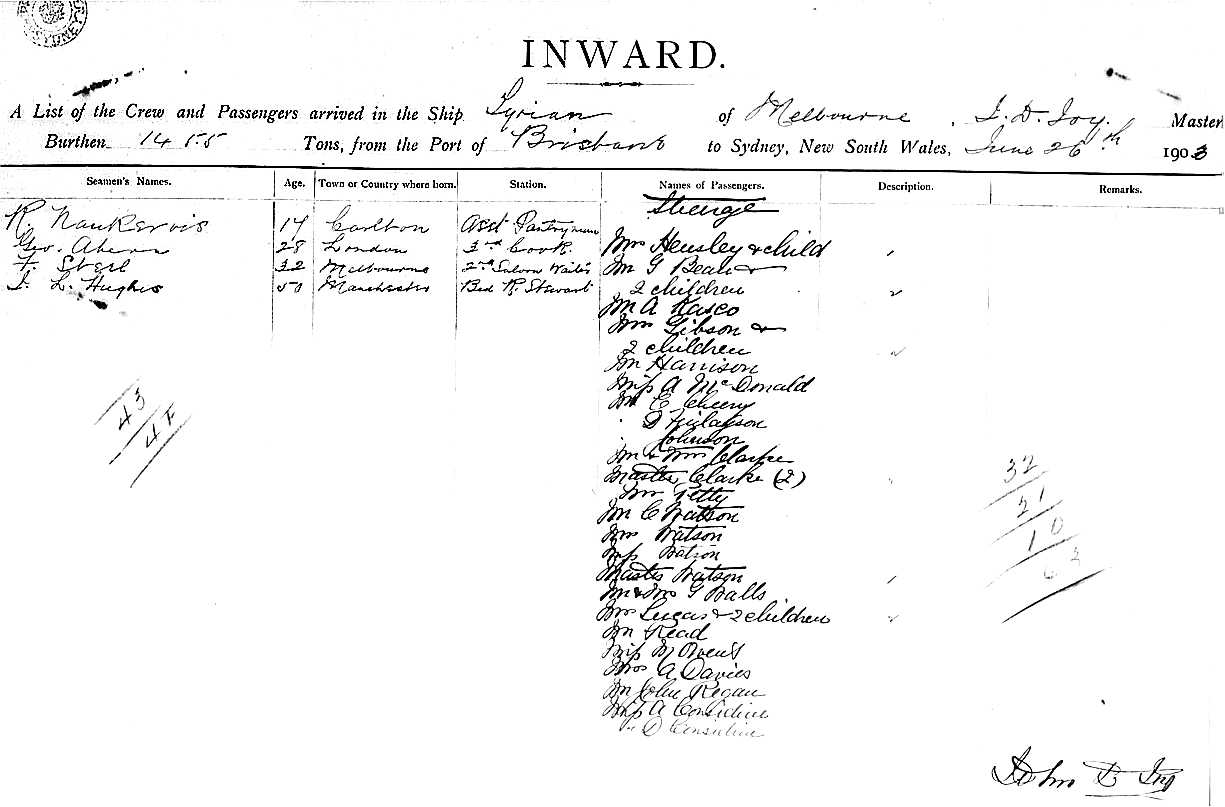 SYDNEY
INWARD.
A List of the Crew and Passengers arrived in the Ship Syrian of Melbourne, J. D. Joy. Master
Burthen 1455 Tons, from the Port of Brisbane to Sydney, New South Wales, June 26th 1903
Seamen's Names. Age. Town or Country where born. Station. Names of Passengers. Description. Remarks.
R. Nankervis 17 Carlton Asst Pantryman
Geo. Ahern 28 London 3rd Cook
F. 32 Melbourne 2nd Saloon Waiter
J. L. Hughes 50 Manchester Bed R. Steward
43
Steerage
Mrs Hensley & child
Mr G Bean &
2 children
Mr A Rasco
Mrs Gibson &
2 children
Mr Harrison
Miss A McDonald
Mr E Cheery
D Finlayson
Johnson
Mr & Mrs Clarke
Master Clarke (2)
Mr Petty
Mr C Watson
Mrs Watson
Miss Watson
Master Watson
Mr & Mrs G Balls
Mrs Lucas & 2 children
Mr Read
Miss M Owens
Mrs A Davies
Mr John Regan
Miss A Considine
" D Considine
32
21
10
63
John D Joy